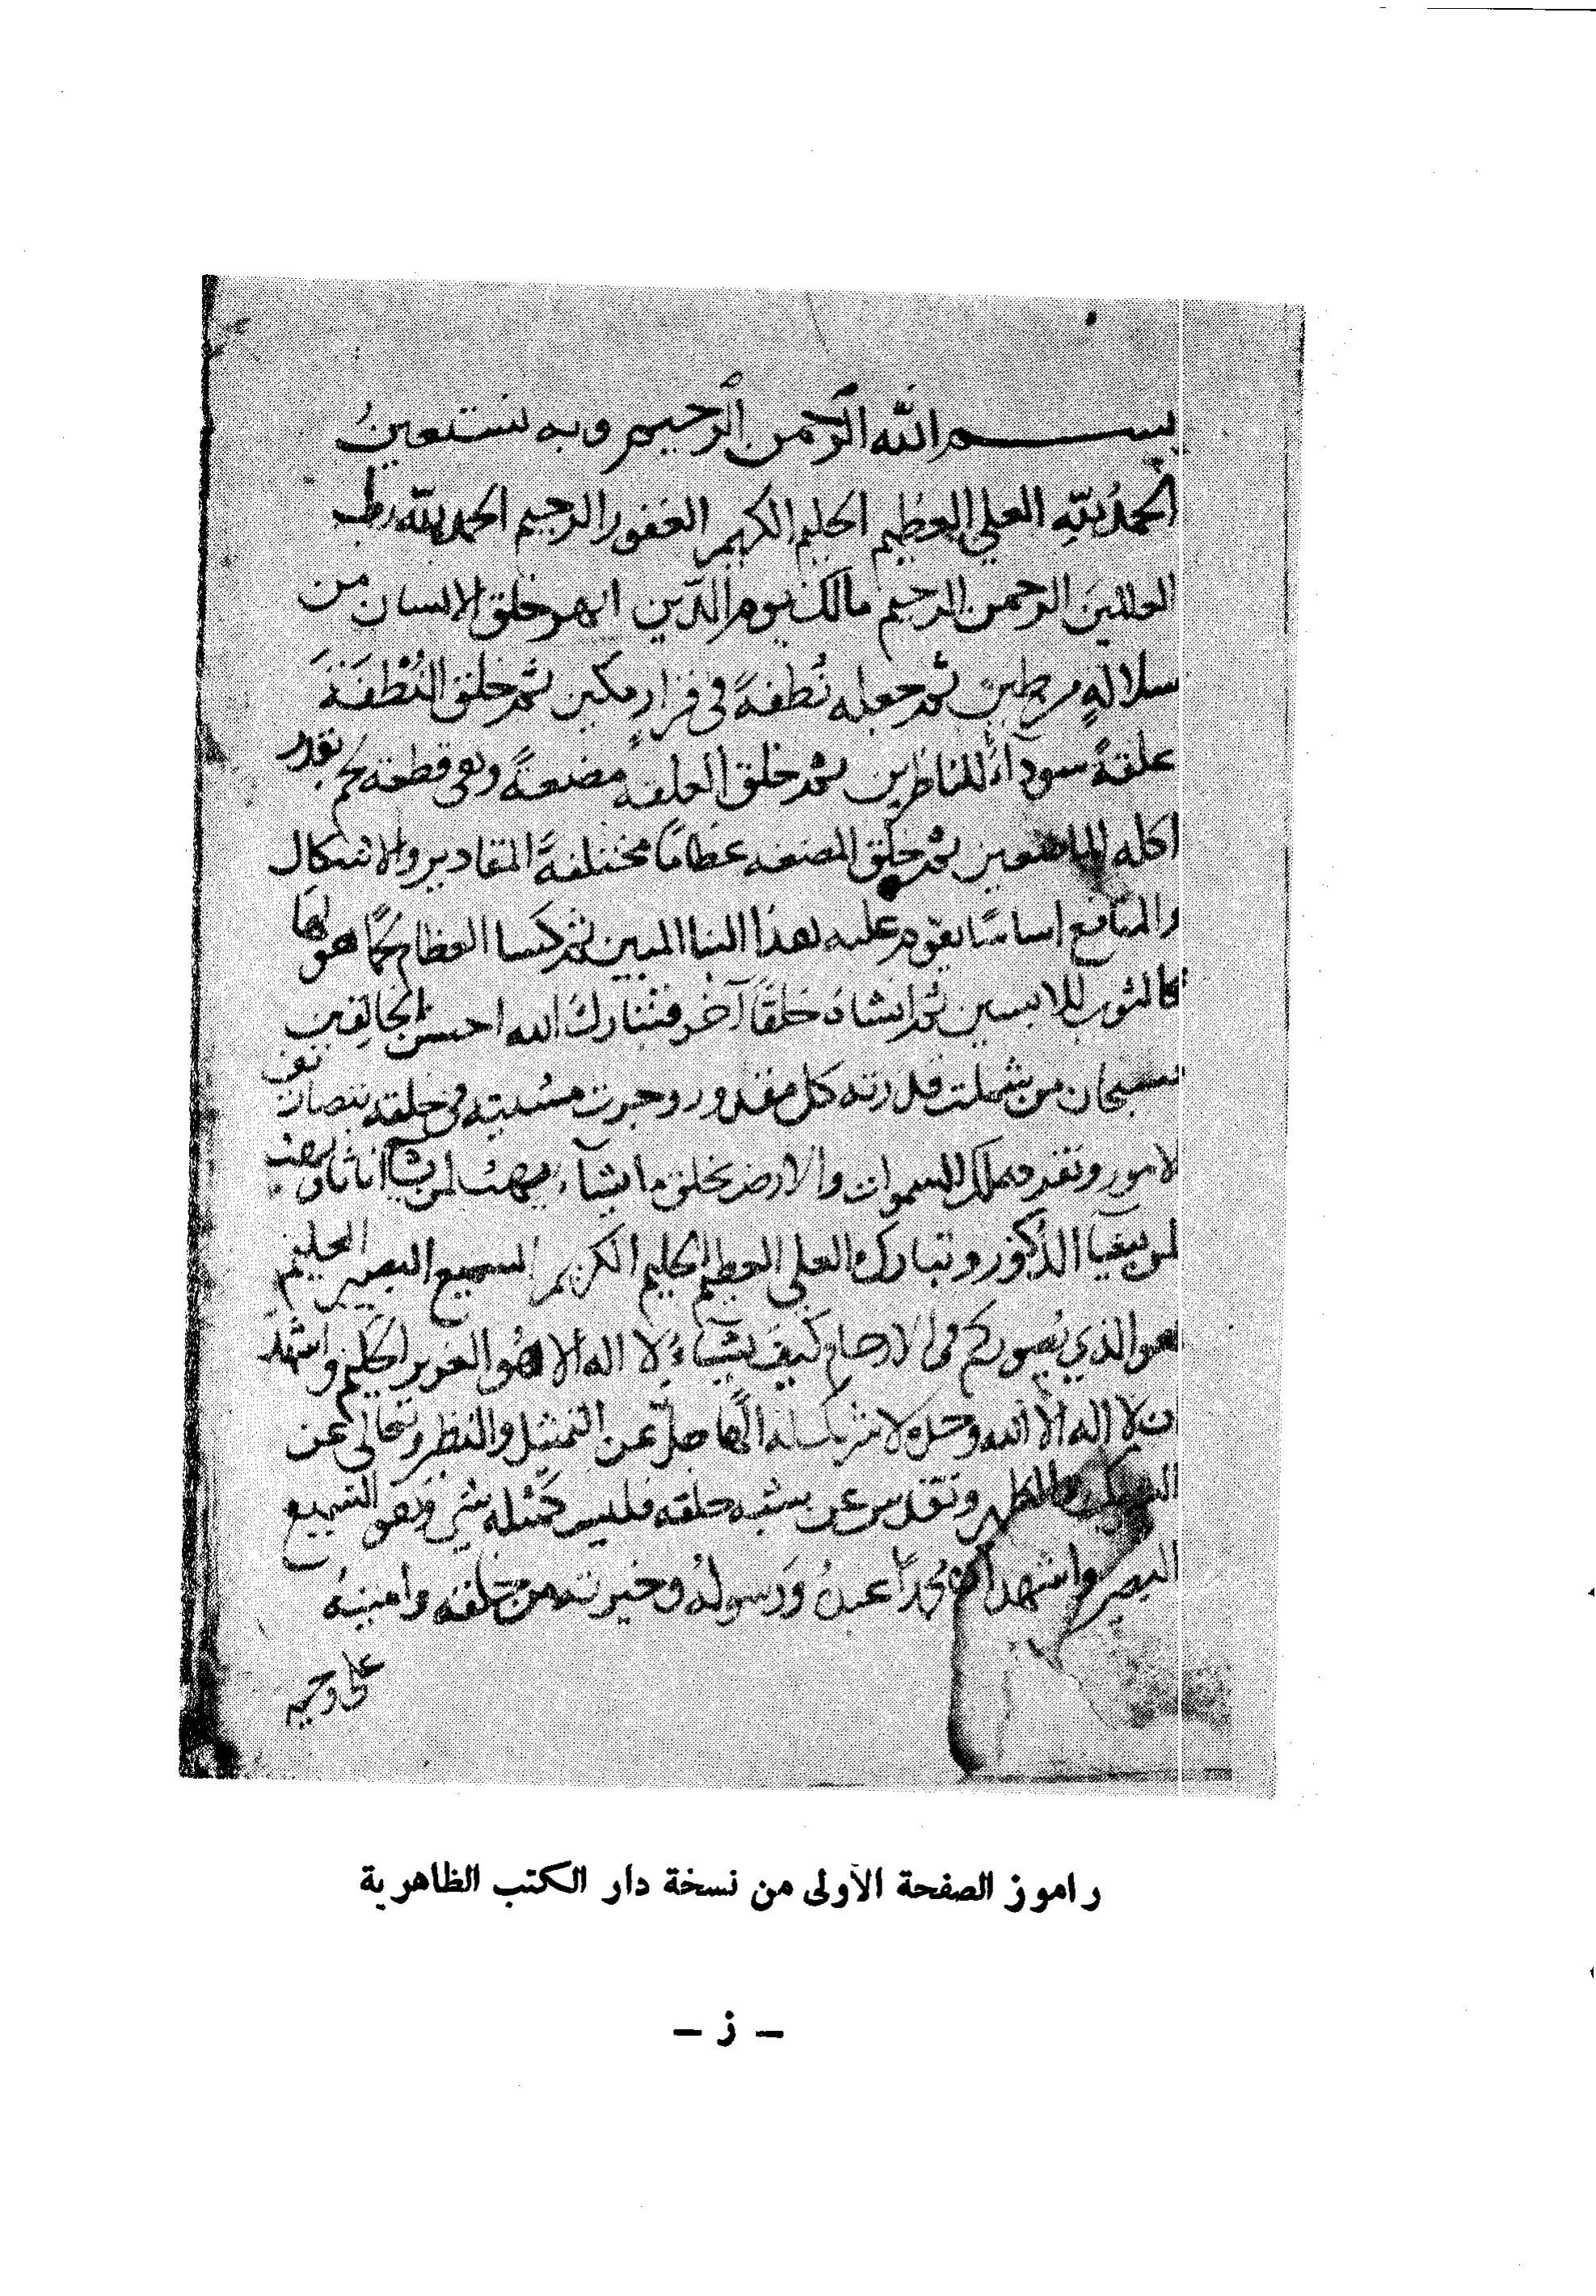 بسم الله الرحمن الرحيم وبه نستعين
الحمد لله العلي العظيم الحليم الكريم الغفور الرحيم الحمد لله رب
العالمين الرحمن الرحيم مالك يوم الدين خلق الانسان من
سلالة من طين ثم جعله نطفة في قرار مكين ثم خلق النطفة
علقة سودآء للناظرين ثم خلق العلقة مضغة وهي قطعة لحم بقدر
اكلة الماضغين ثم خلق المضغه عظامًا مختلفة المقادير والاشكال
والمنافع اساسًا يقوم عليه هذا البنا المبين ثم كسا العظام لحمًا هو لها
كالثوب للابسين ثم انشاه خلقًا آخر فتبارك الله احسن الخالقين
فسبحان من شملت قدرته كل مقدور وجرت مشيته في خلقه بتصاريف
لامور وتفرد بملك السموات والارض يخلق ما يشآء يهب لمن يشآ اناثا ويهب
لمن يشآ الذكور وتبارك العلي العظيم الحليم الكريم السميع البصير العليم
هو الذي يصوركم في الارحام كيف يشآء لا اله الا هو العزيز الحكيم واشهد
ن لا اله الا الله وحده لا شريك له الهًا جلّ عن المثل والنظير وتعالى عن
الشريك والظهير وتقدس عن شبه خلقه فليس كمثله شي وهو السميع
البصير واشهد ان محمدًا عبده ورسوله وخيرته من خلقه وامينه
على وحيه
راموز الصفحة الأولى من نسخة دار الكتب الظاهرية
– ز –